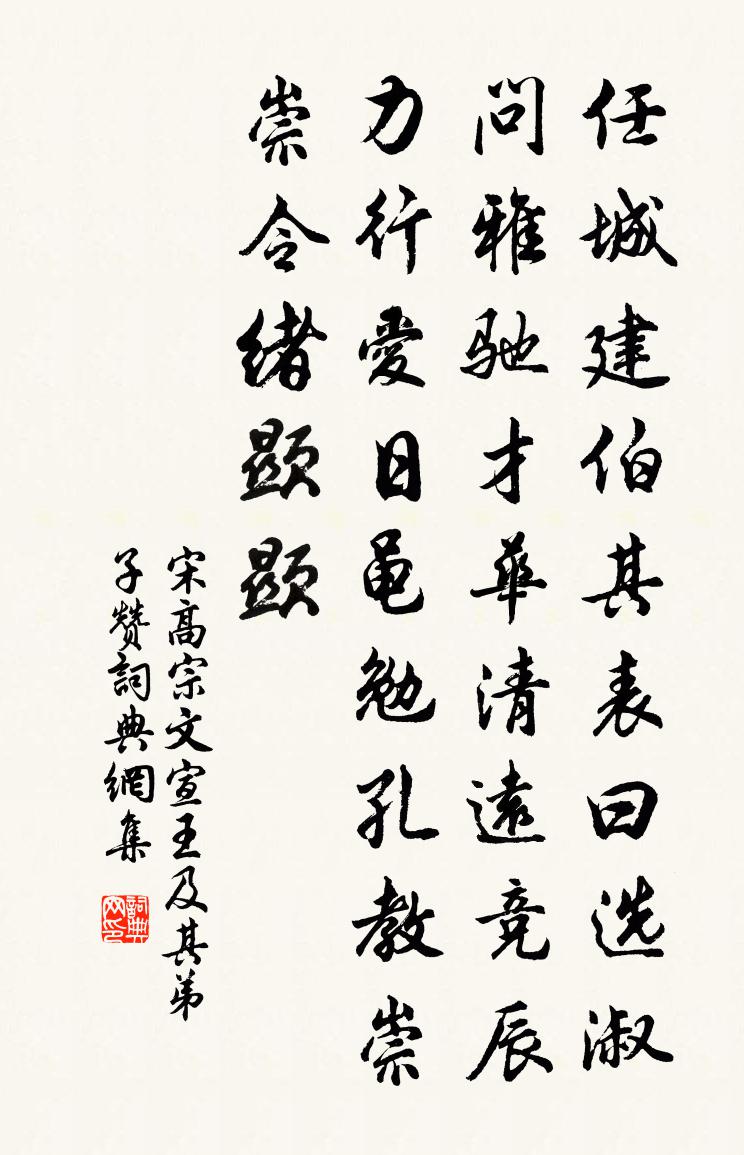 任城建伯其表曰选淑
問雅驰才華清遠竞辰
力行愛日黾勉孔教崇
崇令绪顕顕
宋高宗文宣王及其弟
子赞詞典網集
詞典网印